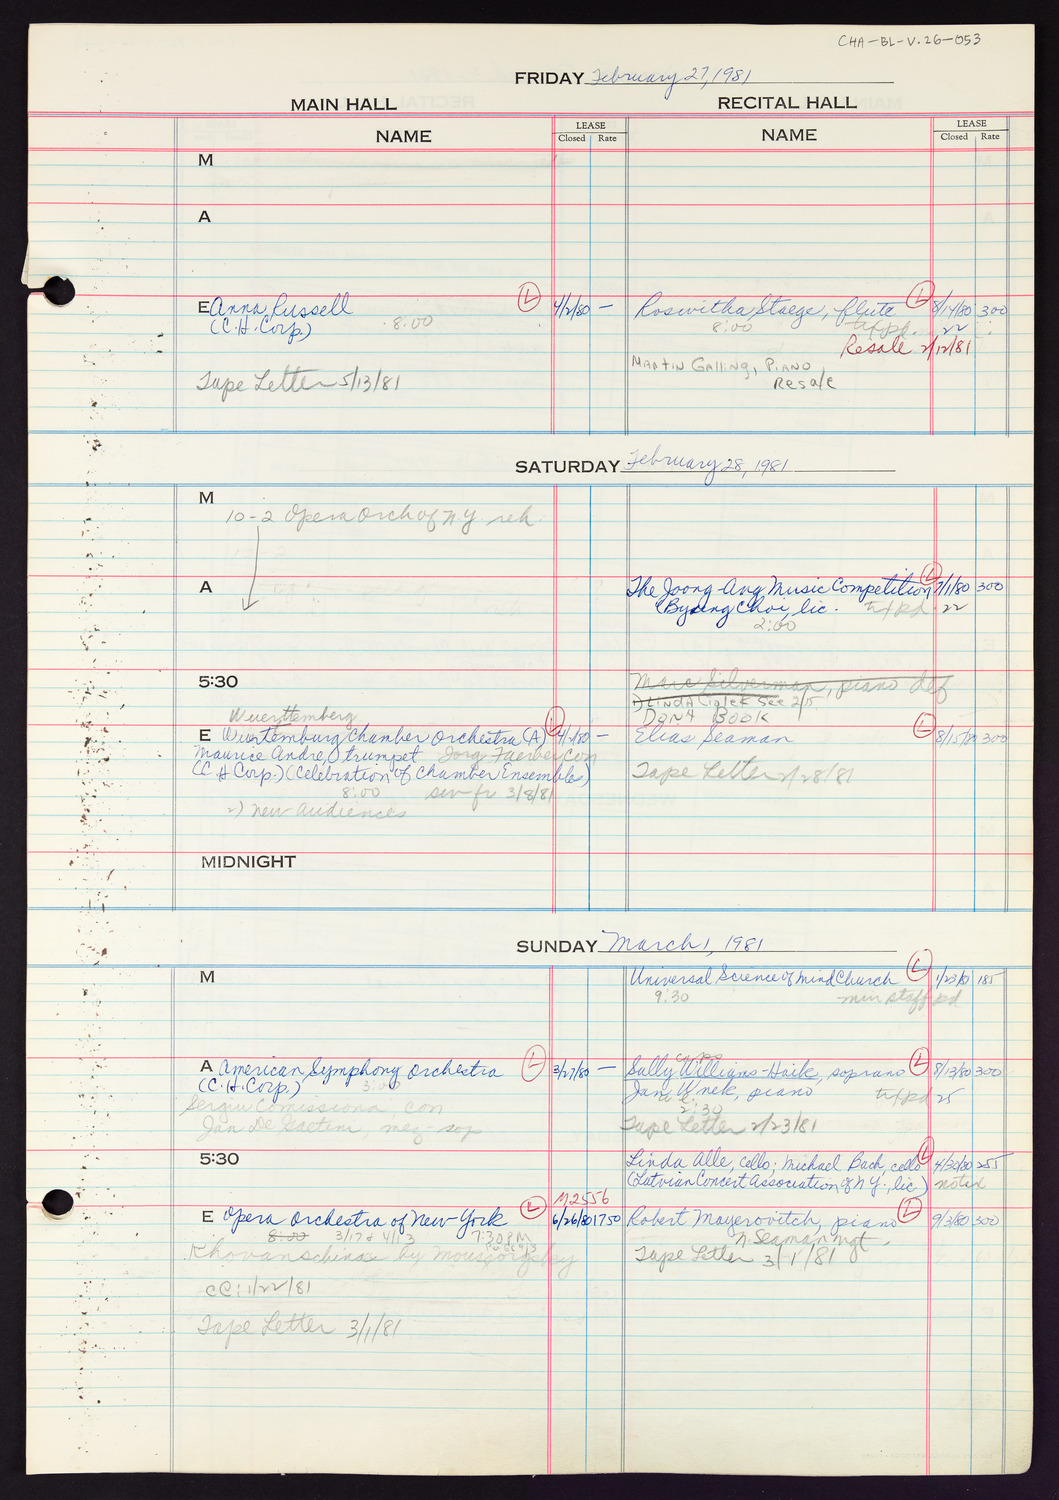 CHA-BL-V.26-053
FRIDAY February 27, 1981
MAIN HALL
RECITAL HALL
NAME
LEASE
Closed Rate
NAME
LEASE
Closed Rate
M
A
E Anna Russell L 4/2/80 —
(C.H. Corp.) 8:00
Tape Letter 5/13/81
Roswitha Staege, flute L 8/14/80 300
8:00 tx pd. 22
Resale 2/12/81
MARTIN Galling, PIANO
Resale
SATURDAY February 28, 1981
M
10-2 Opera Orch of N.Y. reh.
A
The Joong-Ang Music Competition L 7/1/80 300
(Byung Choi, lic. tx pd. 22
2:00
5:30
Marc Silverman, piano def
1) LINDA see 2/5
Don't Book
Wuerttemberg
E Wurtemburg Chamber Orchestra (A) L —
Maurice Andre, trumpet Jorg Faerber, con
(C.H Corp.) (Celebration of Chamber Ensembles)
8:00 sw fr 3/8/81
2) New Audiences
Elias Seaman L 8/15/80 300
Tape Letter 2/28/81
MIDNIGHT
SUNDAY March 1, 1981
M
Universal Science of Mind Church L 185
9:30 min staff pd
A American Symphony Orchestra L 3/27/80 —
(C.H. Corp.) 3:00
Sergiu Comissiona, con
Jan De Gaetani mez-sop
Sally Williams-Haik, soprano L 8/13/80 300
piano tx pd 25
2:30
Tape Letter 2/23/81
5:30
Linda Alle, cello; Michael Bach, cello L 4/30/80 255
(Latvian Concert Association of N.Y., lic) noted
M2556
E Opera Orchestra of New York L 6/26/80 1750
8:00 3/17 & 4/13 7:30 PM
Khovanschina by Moussorgsky
CC: 1/22/81
Tape Letter 3/1/81
Robert Mayerovitch, piano L 9/3/80 300
N. Seaman mgt.
Tape Letter 3/1/81